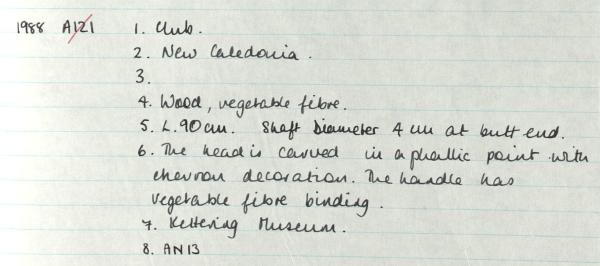 1988 A121 1. Club.
2. New Caledonia.
3.
4. Wood, vegetable fibre.
5. L. 90cm. Shaft Diameter 4 cm at butt end.
6. The head is carved in a phallic point with
chevron decoration. The handle has
vegetable fibre binding.
7. Kettering Museum.
8. AN13